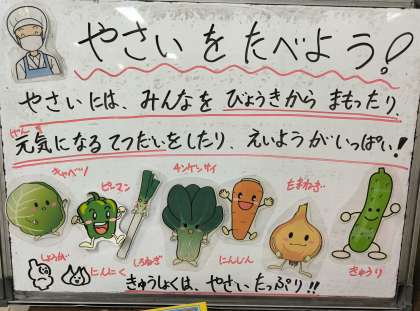 やさいをたべよう!
やさいには、みんなをびょうきからまもったり、
げんき
元気になるてつだいをしたり、えいようがいっぱい!
キャベツ
ピーマン
しろねぎ
チンゲンサイ
にんじん
たまねぎ
きゅうり
しょうが
にんにく
きゅうしょくは、やさいたっぷり!!